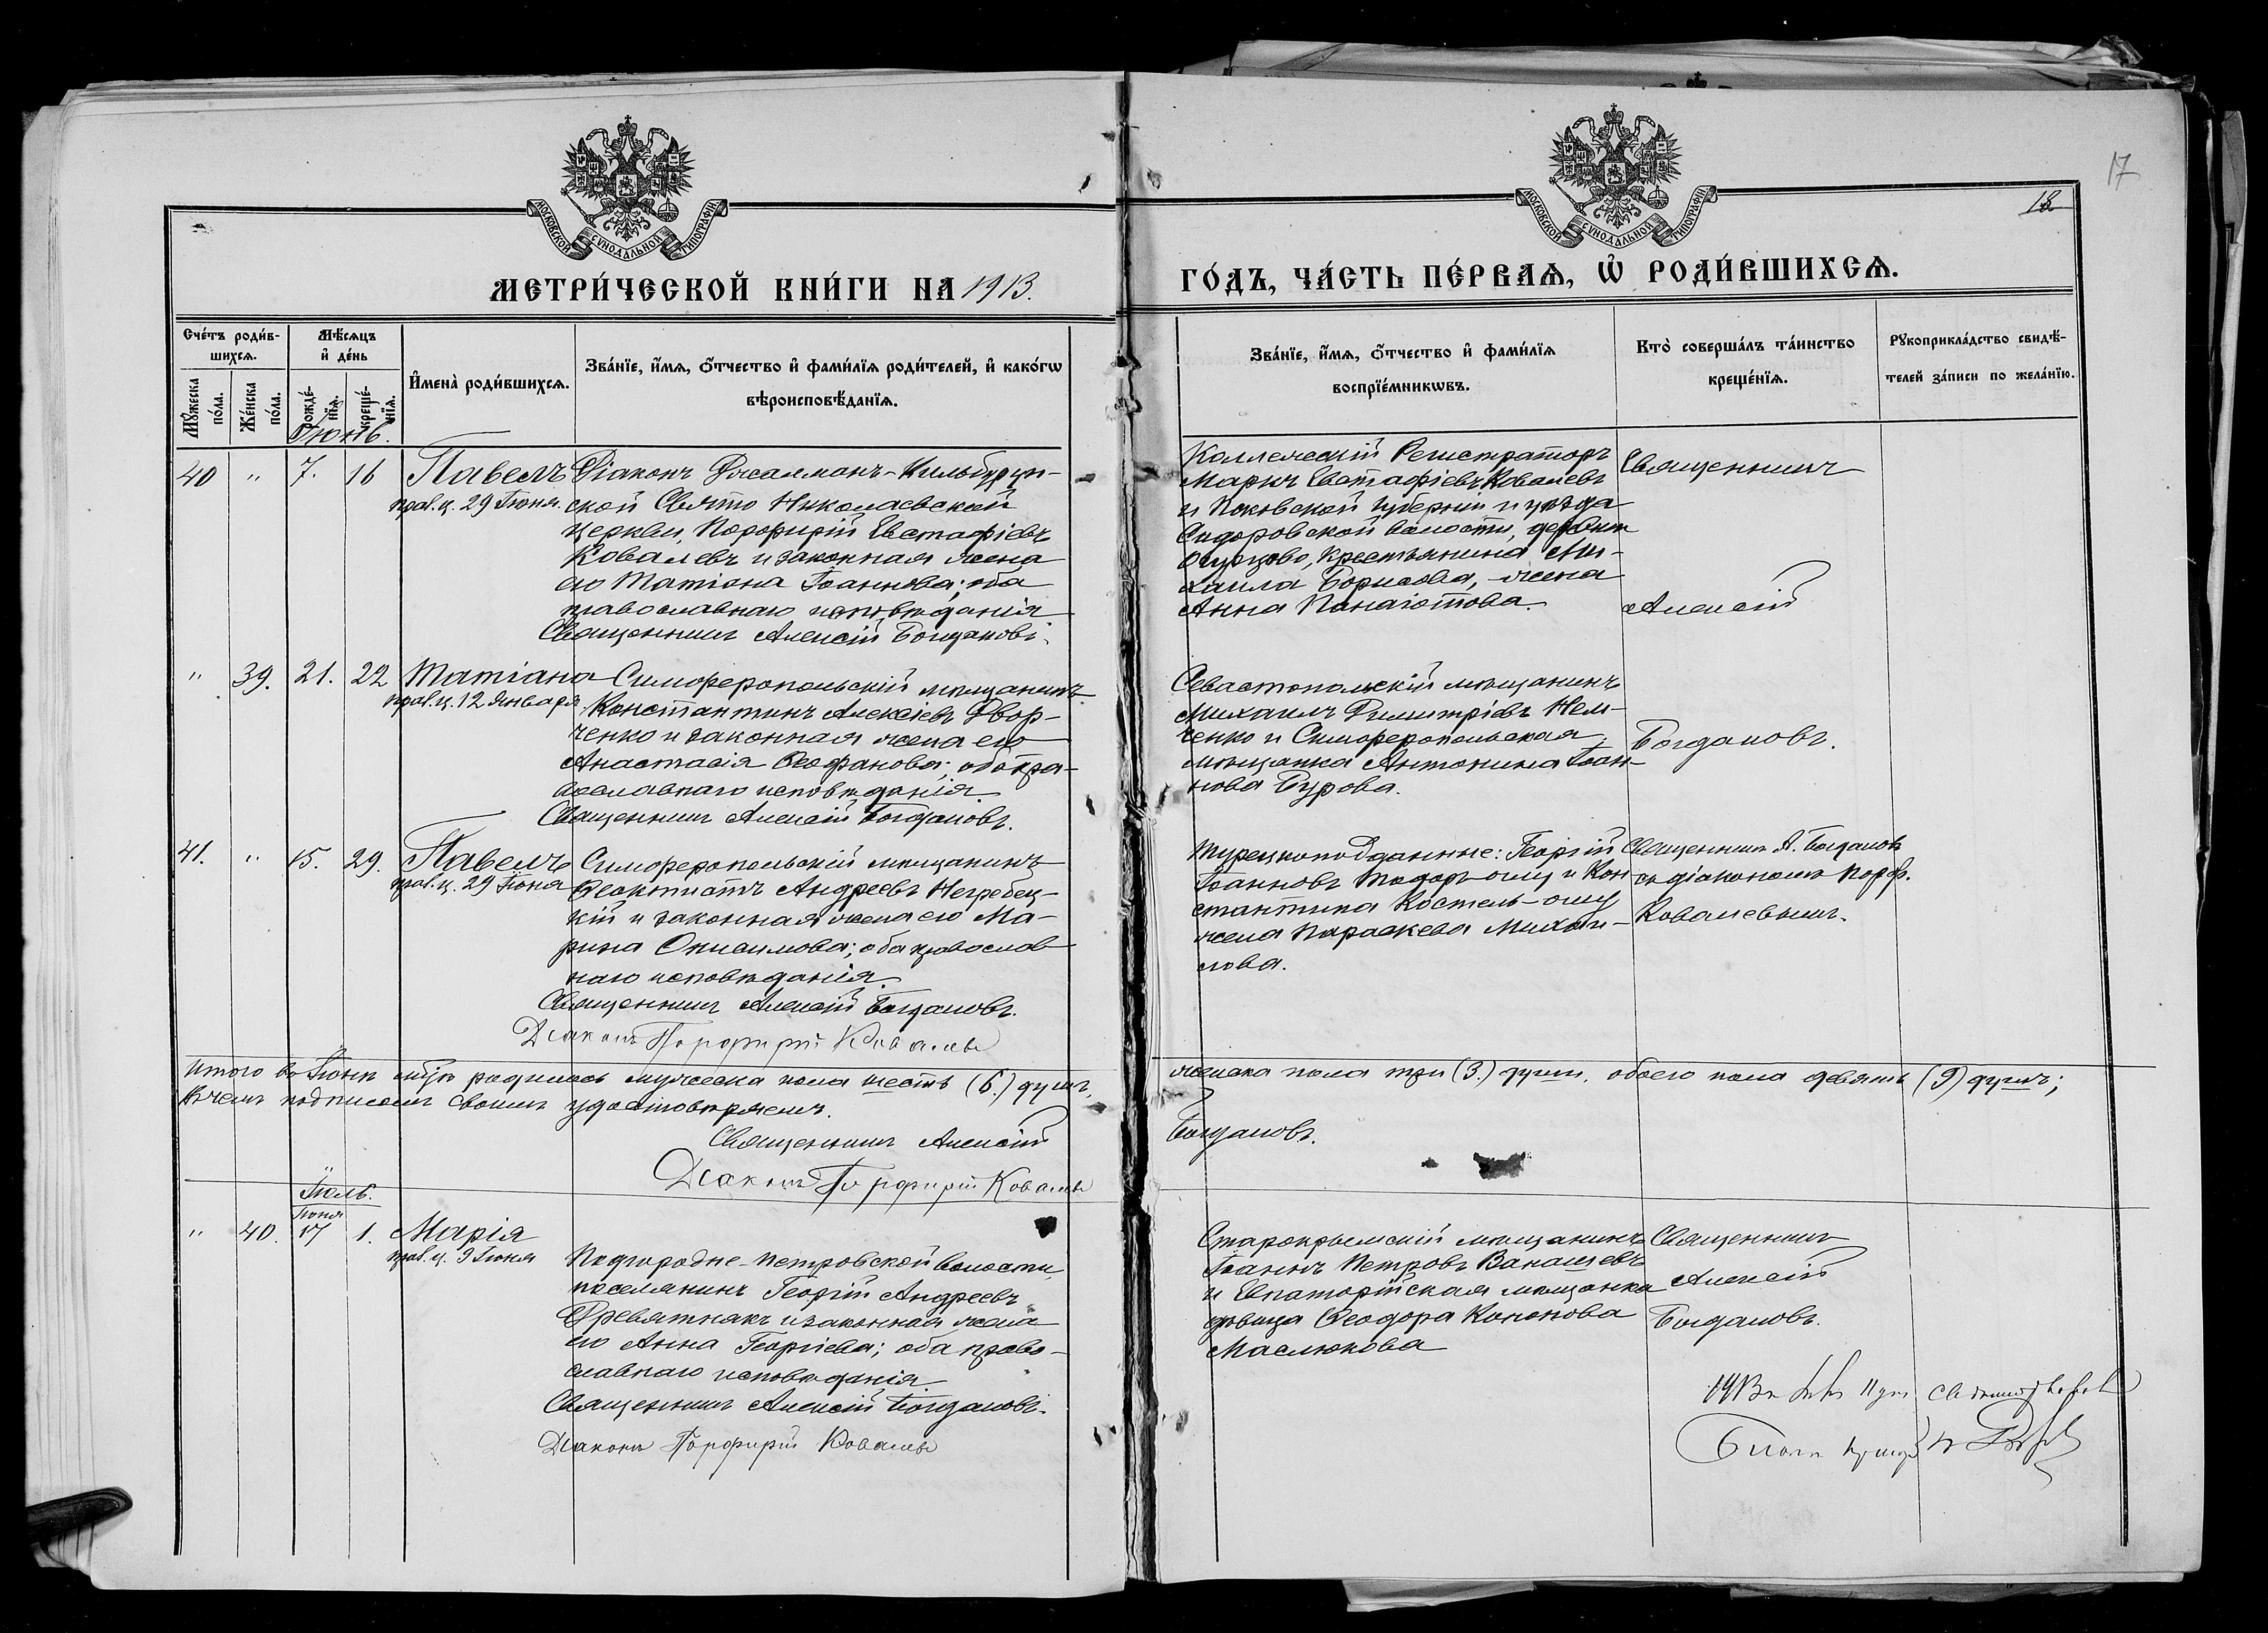 17
18
МОСКОВСКОЙ СУНОДАЛЬНОЙ ТИПОГРАФІИ
МОСКОВСКОЙ СУНОДАЛЬНОЙ ТИПОГРАФІИ
МЕТРИ́ЧЕСКОЙ КНИ́ГИ НА 1913.
ГО́ДЪ, ЧА́СТЬ ПЕ́РВАѦ, Ѡ҆ РОДИ́ВШИХСѦ.
Сче́тъ роди́в-
шихсѧ.
Мꙋ́жеска по́ла.
Же́нска по́ла.
Мѣ́сѧцъ
и҆ де́нь
рожде́-
нїѧ.
креще́-
нїѧ.
И҆мена̀ роди́вшихсѧ.
Зва́нїе, и҆́мѧ, ѻ҆́тчество и҆ фами́лїѧ роди́телей, и҆ како́гѡ
вѣроисповѣ́данїѧ.
Зва́нїе, и҆́мѧ, ѻ҆́тчество и҆ фами́лїѧ
воспрїе́мникѡвъ.
Кто̀ соверша́лъ та́инство
креще́нїѧ.
Рꙋкоприкла́дство свидѣ́-
телей за́писи по жела́нїю.
Іюнь.
40 " 7. 16 Павелъ
прав. ц. 29 Іюня.
Діаконъ Джалманъ-Кильбурун-
ской Свято Николаевской
церкви, Порфирій Евстафіевъ
Ковалевъ и законная жена
его Татіана Іоаннова; оба
православнаго исповѣданія.
Священникъ Алексій Богдановъ.
Коллежскій Регистраторъ
Маркъ Евстафіевъ Ковалевъ
и Псковской губерніи и уѣзда
Сидоровской волости, деревни
Огурцово, крестьянина Ми-
хаила Борисова, жена
Анна Панаіотова.
Священникъ
Алексій
" 39. 21. 22 Татіана
прав. ц. 12 Января.
Симферопольскій мѣщанинъ
Константинъ Алексіевъ Двор-
ченко и законная жена его
Анастасія Ѳеофанова; оба пра-
вославнаго исповѣданія.
Священникъ Алексій Богдановъ.
Севастопольскій мѣщанинъ
Михаилъ Димитріевъ Нем-
ченко и Симферопольская
мѣщанка Антонина Іоан-
нова Бурова.
Богдановъ.
41. " 15. 29. Павелъ
прав. ц. 29 Іюня
Симферопольскій мѣщанинъ
Ѳеоктистъ Андреевъ Негребец-
кій и законная жена его Ма-
рина Онисимова; оба православ
наго исповѣданія.
Священникъ Алексій Богдановъ.
Діаконъ Порфирій Ковалевъ
Турецкоподданные: Георгій
Іоанновъ Тодоръ-оглу и Кон-
стантина Костель-оглу
жена Параскева Михаи-
лова.
Священникъ А. Богдановъ
съ діакономъ Порф.
Ковалевымъ.
Итого въ Іюнѣ мѣс. родилось мужеска пола шесть (6.) душъ,
женска пола три (3.) души, обоего пола девять (9) душъ;
въ чемъ подписомъ своимъ удостовѣряемъ.
Священникъ Алексій
Богдановъ.
Діаконъ Порфирій Ковалевъ
Іюль.
Іюня
" 40. 17 1. Марія
прав. ц. 9 Іюня
Подгородне-Петровской волости,
поселянинъ Георгій Андреевъ
Древятнякъ и законная жена
его Анна Георгіева; оба право-
славнаго исповѣданія.
Священникъ Алексій Богдановъ.
Діаконъ Порфирій Ковалевъ
Старокрымскій мѣщанинъ
Іоаннъ Петровъ Ванашевъ
и Евпаторійская мѣщанка
дѣвица Ѳеодора Кононова
Маслюкова
Священникъ
Алексій
Богдановъ.